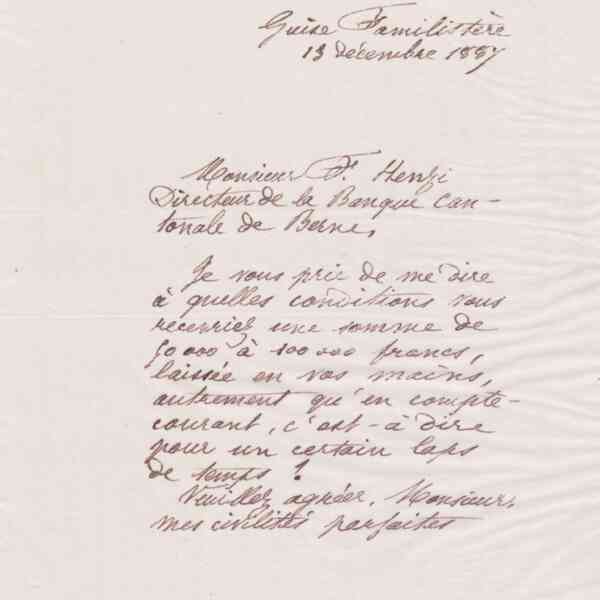 Guise Familistère
13 décembre 1887
Monsieur F. Henzi
Directeur de la Banque Can-
tonale de Berne,
Je vous prie de me dire
à quelles conditions vous
recevriez une somme de
50 000 à 100 000 francs,
laissée en vos mains,
autrement qu'en compte-
courant, c'est-à-dire
pour un certain laps
de temps !
Veuillez agréer, Monsieur,
mes civilités parfaites